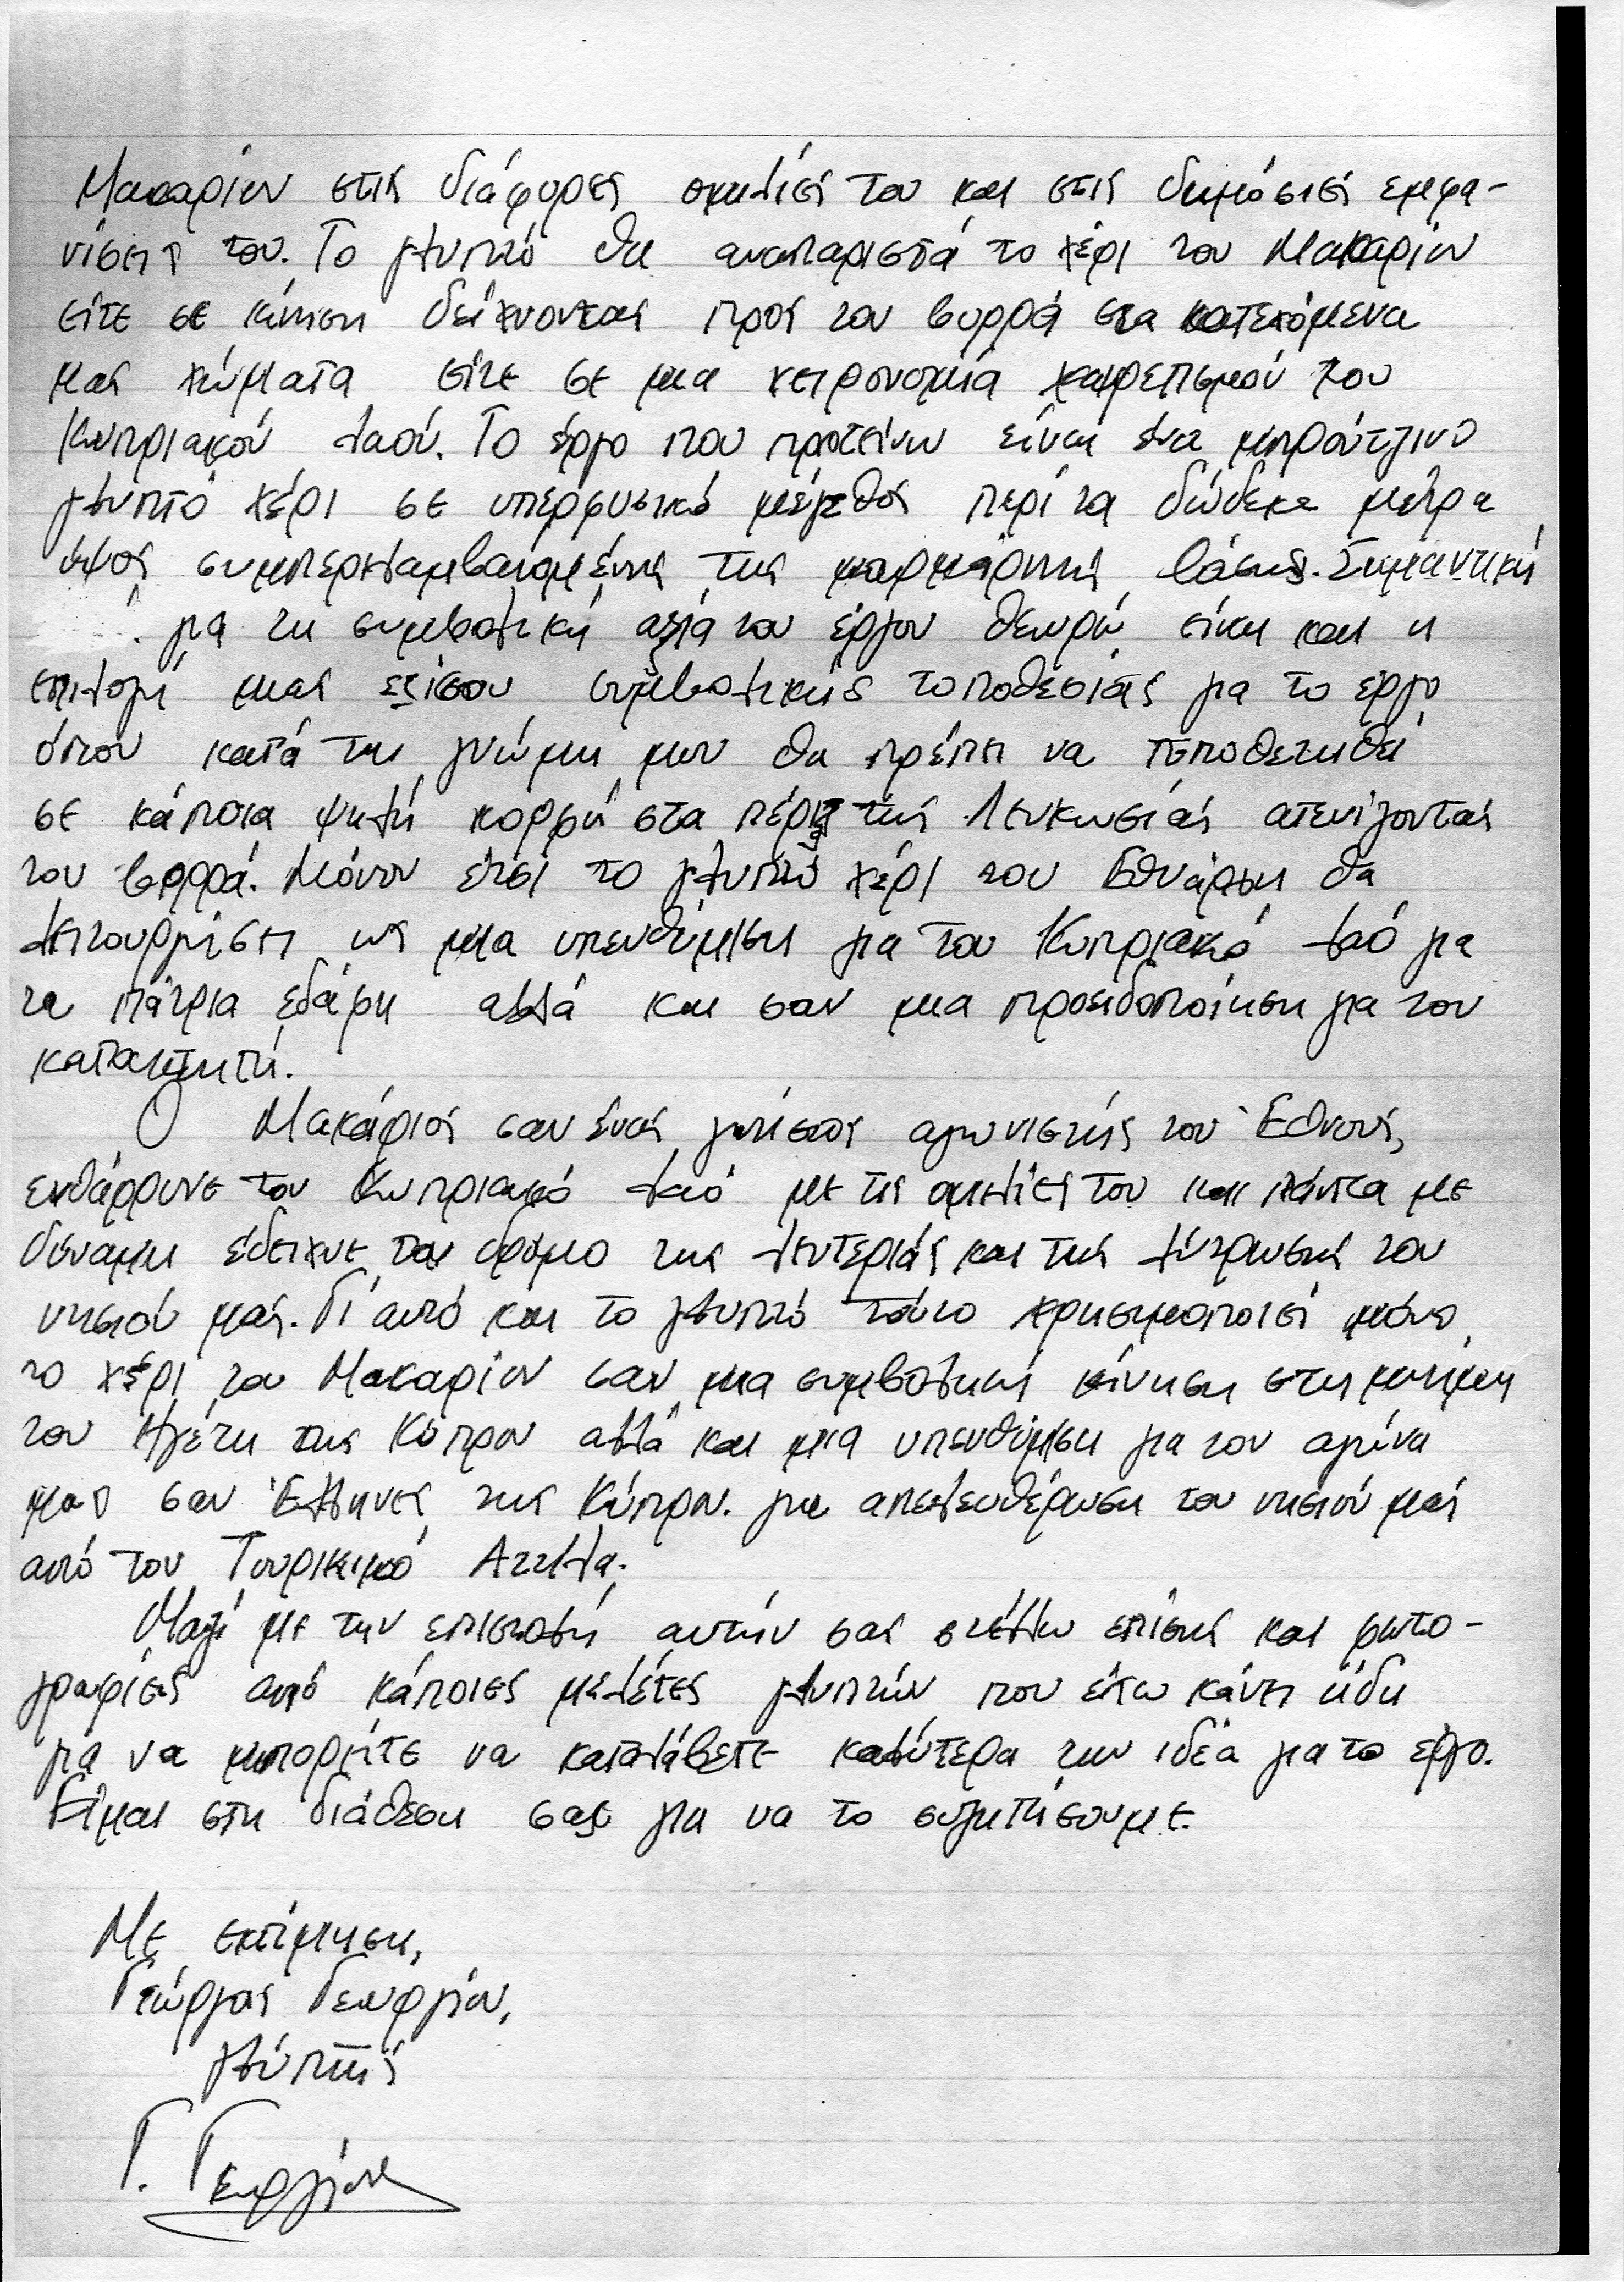 Μακαρίου στις διάφορες ομιλίες του και στις δημόσιες εμφα-
νίσεις του. Το γλυπτό θα αναπαριστά το χέρι του Μακαρίου
είτε σε κίνηση δείχνοντας προς τον βορρά στα κατεχόμενα
μας χώματα είτε σε μια χειρονομία χαιρετισμού του
Κυπριακού λαού. Το έργο που προτείνω είναι ένα μπρούτζινο
γλυπτό χέρι σε υπερφυσικό μέγεθος περί τα δώδεκα μέτρα
ύψος συμπεριλαμβανομένης της μαρμάρινης βάσης. Σημαντική
για τη συμβολική αξία του έργου θεωρώ είναι και η
επιλογή μιας εξίσου συμβολικής τοποθεσίας για το έργο
όπου κατά τη γνώμη μου θα πρέπει να τοποθετηθεί
σε κάποια ψηλή κορφή στα πέριξ της Λευκωσίας ατενίζοντας
τον βορρά. Μόνον έτσι το γλυπτό χέρι του Εθνάρχη θα
λειτουργήσει ως μια υπενθύμιση για τον Κυπριακό λαό για
τα πάτρια εδάφη αλλά και σαν μια προειδοποίηση για τον
κατακτητή.
Ο Μακάριος σαν ένας γνήσιος αγωνιστής του Έθνους,
ενθάρρυνε τον Κυπριακό λαό με τις ομιλίες του και πάντα με
δύναμη έδειχνε τον δρόμο της λευτεριάς και της λύτρωσης του
νησιού μας. Γι' αυτό και το γλυπτό τούτο χρησιμοποιεί μόνο
το χέρι του Μακαρίου σαν μια συμβολική κίνηση στη μνήμη
του Ηγέτη της Κύπρου αλλά και μια υπενθύμιση για τον αγώνα
μας σαν Έλληνες της Κύπρου. για απελευθέρωση του νησιού μας
από τον Τουρκικό Αττίλα.
Μαζί με την επιστολή αυτήν σας στέλλω επίσης και φωτο-
γραφίες από κάποιες μελέτες γλυπτών που έχω κάνει ήδη
για να μπορείτε να καταλάβετε καλύτερα την ιδέα για το έργο.
Είμαι στη διάθεση σας για να το συζητήσουμε.
Με εκτίμηση,
Γιώργος Γεωργίου,
γλύπτης
Γ. Γεωργίου